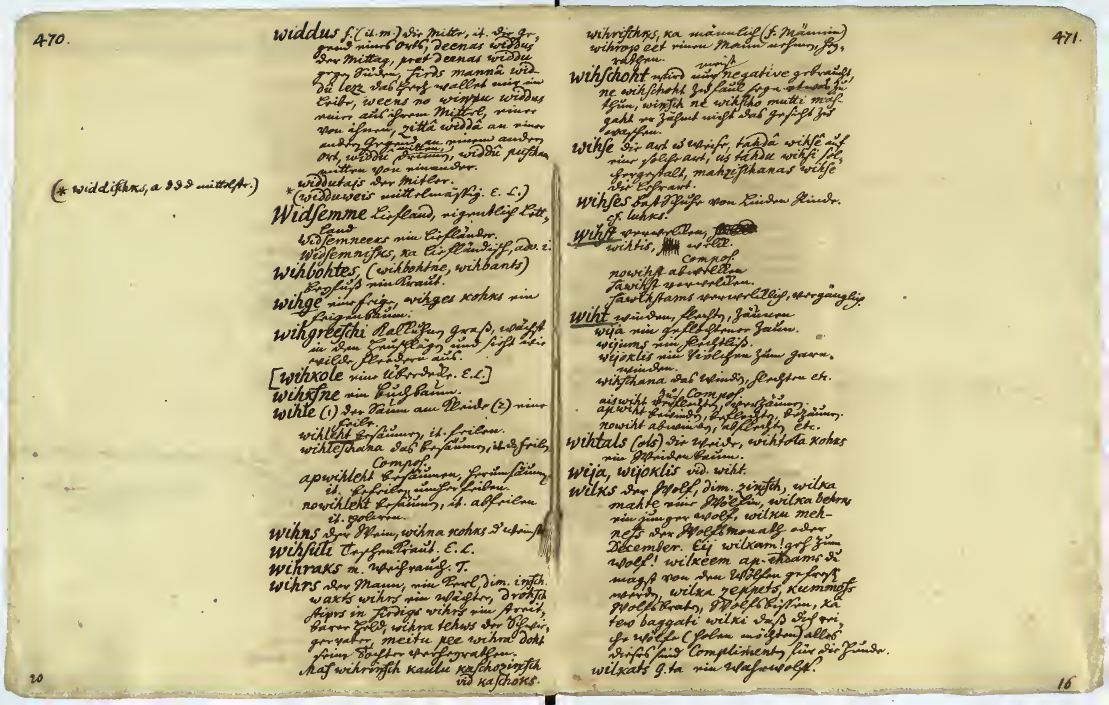 470.
widdus f. (it. m.) die Mitte, it. die Ge-
gend eines Orts, deenas widdus
der Mittag, pret deenas widdu
gegen Süden, sirds mannâ wid-
dû lezz das Herz wallet mir im
Leibe, weens no winņu widdus
einer aus ihrem Mittel, einer
von ihnen, zittâ widdâ an einer
andern Gegend, an einem andern
Ort, widdû mitten
mitten von einander.
(* widdischks, a mittelste.)
* widdutajs der Mitler.
(widduweis mittelmässig. E. L.)
Widsemme Liefland, eigentlich Lett-
land
widsemneeks ein Liefländer.
widsemnisks, ka Liefländisch, adv. i.
wihbohtes, (wihbohtne, wihbants)
Beyfuß ein Kraut.
wihge eine Feige, wihges kohks ein
Feigenbaum.
wihgreeschi Graß, wächst
in den und sieht wie
wilde aus.
[wihkole eine Überdecke. E. L.]
wihksne ein Buchbaum.
wihle (1) der Saum am Kleide (2) eine
Feile.
wihleht besäumen, it. feilen.
wihleschana das Besäumen, it. das Feilen
Compos.
apwihleht besäumen, herumsäumen
it. befeilen umher feilen.
nowihleht besäumen, it. abfeilen
it. poliren.
wihns der Wein, wihna kohks d Weinst.
wihsuli Kraut. E. L.
wihraks m. Weyhrauch. T.
wihrs der Mann, ein Kerl, dim. insch.
wakts wihrs ein Wächter, drohsch
stiprs in sirdigs wihrs ein streit-
barer Held, wihra tehws der Schwie-
gervater, meitu pee wihra doht
seine Tochter verheyrathen.
Mas wihrinsch kaulu kaschozinsch
vid kaschoks.
20
471.
wihrischks, ka männlich (f. Männin)
wihrop eet einen Mann nehmen, hey-
rathen.
meist
wihschoht wird nur negative gebraucht,
ne wihschoht zu faul seyn etwas zu
thun, winsch ne wihscho mutti mas-
gaht er nicht das Gesicht zu
waschen.
wihse die Art u Weise, tahdâ wihsê auf
eine solche Art, us tahdu wihsi sol-
chergestalt, mahzischanas wihse
die Lehrart.
wihses Bastschuhe von Linden Rinde.
cf. luhks.
wihst verwelken,
wihtis, welk.
Compos.
nowihst abwelken
sawihst verwelken.
sawihstams verwelklich, vergänglich
wiht winden, flechten, zäunen
wija ein geflochtener Zaun.
wijums ein Flechtliß.
wijoklis ein Türchen zum Garn-
winden.
wihschana das Winden, Flechten etc.
Compos.
aiswiht verflechten, verzäunen.
apwiht bewinden, beflechten, bezäunen.
nowiht abwinden, abflechten etc.
wihtals (ols) die Weide, wihtola kohks
ein Weidenbaum.
wija, wijoklis vid. wiht.
wilks der Wolf, dim. zinsch, wilka
mahte eine Wölfin, wilka behrns
ein junger Wolf, wilku meh-
nes der Wolfsmonath oder
December. Ej wilkam! geh zum
Wolf! wilkeem ap-ehdams du
magst von den Wölfen gefressen
werden, wilka zeppets, kummoss
Wolfsbraten, Wolfsbissen, ka
tew baggati wilki daß dich rei-
che Wölfe (holen möchten) alles
dieses sind Complimenten für die Hunde.
wilkats g. ta ein Wahrwolf.
16